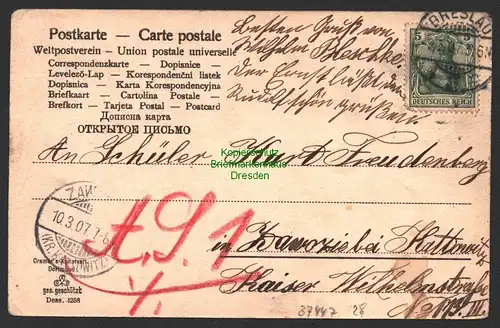 Postkarte — Carte postale
Weltpostverein - Union postale universelle
Correspondenzkarte - Dopisnice
Levelező-Lap - Korespondenční listek
Dopisnica - Karta Korespondencyjna
Briefkaart - Cartolina Postale
Brefkort - Tarjeta Postal - Postcard
Дописна карта
ОТКРЫТОЕ ПИСЬМО
Besten Gruß von
Wilhelm
Der Ernst läßt den
grüßen
BRESLAU
5
DEUTSCHES REICH
Kopierschutz
Briefmarkenhaus
Dresden
An Schüler Kurt Freudenberg
ZAW
10.3.07.7-8
(KR. WITZ)
in Zawodzie bei Kattowitz
Kaiser Wilhelmstraße
No 173. III.
Cramer's Kunstanstalt
Dortmund
ges. geschützt
Dess. 4258
37447 28